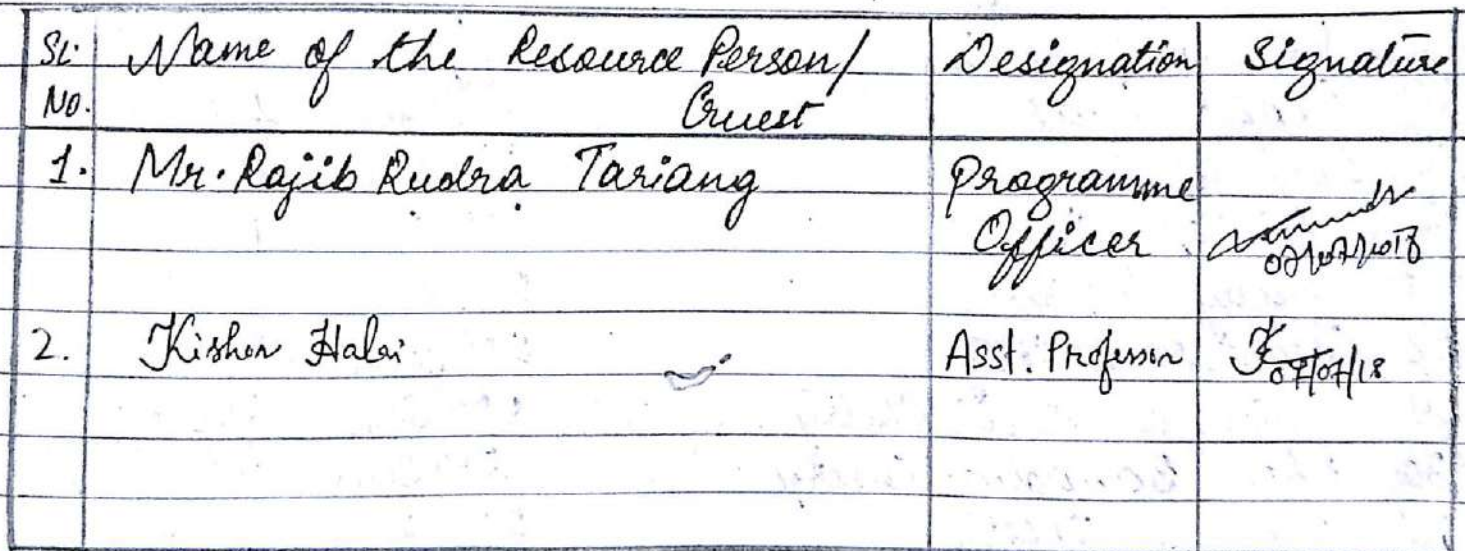 Sl. Name of the Resource Person/ Designation Signature
No. Guest
1. Mr. Rajib Rudra Tariang Programme
Officer
07/07/2018
2. Kishor Halai Asst. Professor 07/07/18